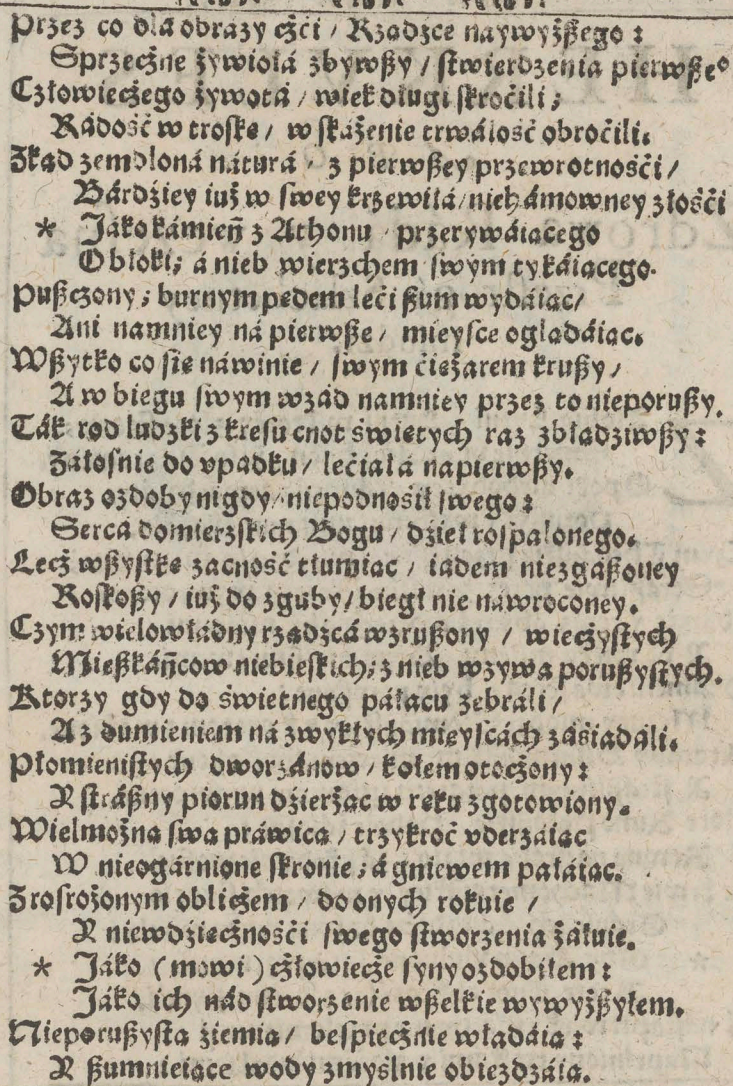 Przez co dla obrázy cżći / Rządzce naywyżßego :
Sprzecżne żywiołá zbywßy / stwierdzenia pierwße°
Człowiecżego żywotá / wiek długi skroćili ;
Rádość w troskę / w skáżenie trwáłość obroćili.
Zkąd zemdlona náturá / z pierwßey przewrotnośći /
Bárdźiey iuż w swey krzewiłá / niehámowney złośći
* Jáko kámień z Athonu / przerywáiącego
Obłoki ; á nieb wierzchem swym tykáiącego.
Pußczony ; burnym pędem leći ßum wydáiąc /
Ani namniey ná pierwße / mieysce oglądáiąc.
Wßytko co się náwinie / swym ćiężarem krußy /
A w biegu swym wzad namniey przez to nieporußy.
Ták rod ludzki z kresu cnot świętych raz zbłądziwßy :
Żáłosnie do vpadku / lećiáłá napierwßy.
Obraz ozdoby nigdy / niepodnośił swego :
Serca do mierzskich Bogu / dźieł rospalonego.
Lecż wßystkę zacność tłumiąc / iadem niezgáßoney
Roskoßy / iuż do zguby / biegł nie náwroconey.
Czym wielowładny rządźcá wzrußony / wiecżystych
Mießkáńcow niebieskich ; z nieb wzywa porußystych.
Ktorzy gdy do świetnego páłacu zebráli /
A z dumieniem ná zwykłych mieyscách záśiadáli.
Płomienistych dworzánow / kołem otocżony :
Y strászny piorun dźierżąc w ręku zgotowiony.
Wielmożną swą práwicą / trzykroć vderzáiąc
W nieogárnione skronie ; á gniewem pałáiąc.
Z rosrożonym oblicżem / do onych rokuie /
Y niewdźięcżnośći swego stworzenia żáłuie.
* Jáko (mowi) cżłowiecże syny ozdobiłem :
Jáko ich nád stworzenie wßelkie wywyżßyłem.
Nieporußystą źiemią / bespiecżnie władáią :
Y ßumnieiące wody zmyślnie obieżdzáią.